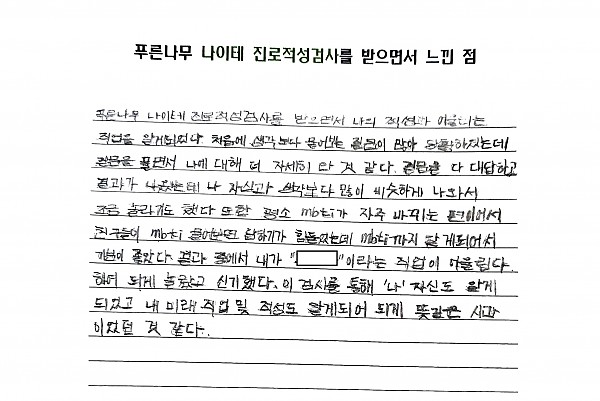 푸른나무 나이테 진로적성검사를 받으면서 느낀 점
푸른나무 나이테 진로적성검사를 받으면서 나의 적성과 어울리는
직업을 알게되었다. 처음에 생각보다 물어보는 질문이 많아 당황하였는데
질문을 풀면서 나에 대해 더 자세히 안 것 같다. 질문을 다 대답하고
결과가 나왔는데 나 자신과 생각보다 많이 비슷하게 나와서
조금 놀라기도 했다 또한 평소 mbti가 자주 바뀌는 편이어서
친구들이 mbti 물어보면 답하기가 힘들었는데 mbti까지 알게되어서
기분이 좋았다. 결과 중에서 내가 " "이라는 직업이 어울린다
하여 되게 놀랍고 신기했다. 이 검사를 통해 '나' 자신도 알게
되었고 내 미래 직업 및 적성도 알게되어 되게 뜻깊은 시간
이었던 것 같다.